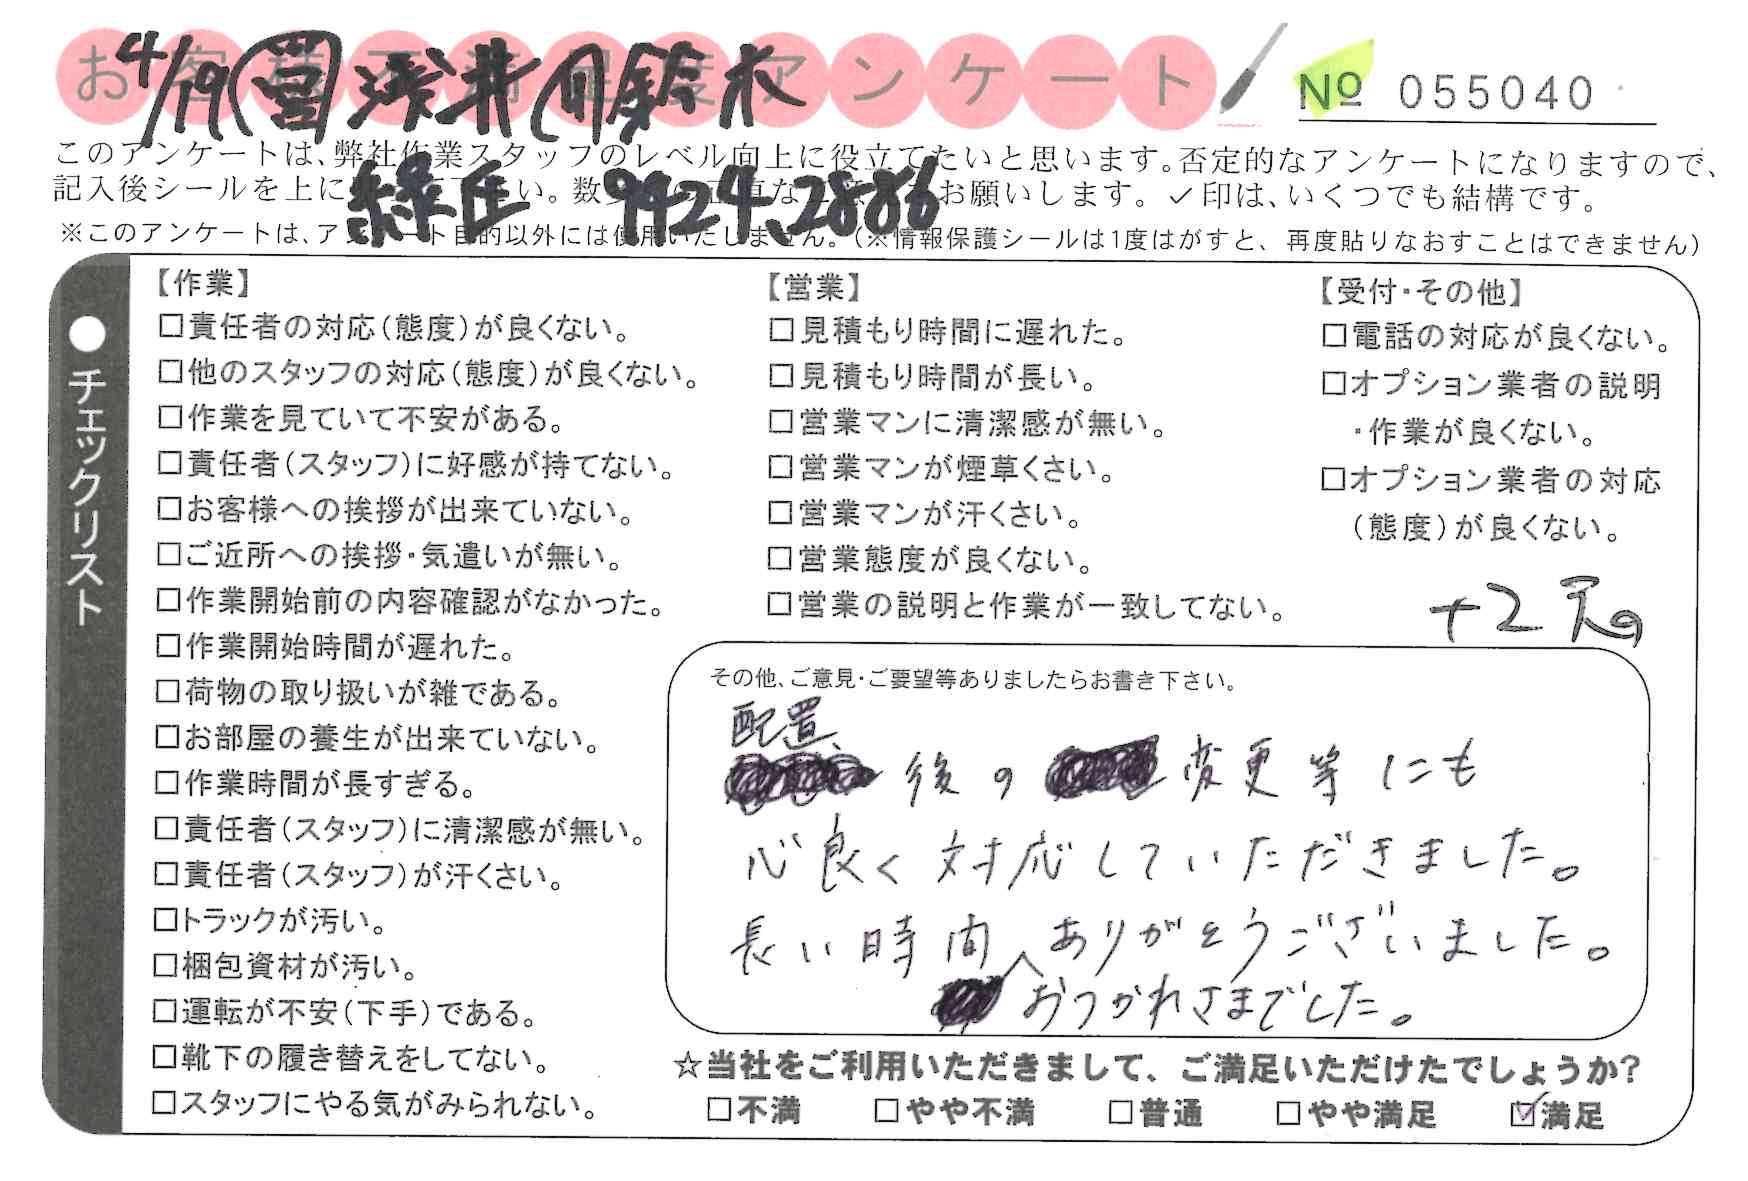 お客様不満足度アンケート
4/19 営 浅井 鈴木
№ 055040
このアンケートは、弊社作業スタッフのレベル向上に役立てたいと思います。否定的なアンケートになりますので、
記入後シールを上に い。数 な お願いします。✓印は、いくつでも結構です。
緑区 9424、2886
※このアンケートは、アンケート目的以外には使用いたしません。(※情報保護シールは1度はがすと、再度貼りなおすことはできません)
●チェックリスト
【作業】
□責任者の対応(態度)が良くない。
□他のスタッフの対応(態度)が良くない。
□作業を見ていて不安がある。
□責任者(スタッフ)に好感が持てない。
□お客様への挨拶が出来ていない。
□ご近所への挨拶・気遣いが無い。
□作業開始前の内容確認がなかった。
□作業開始時間が遅れた。
□荷物の取り扱いが雑である。
□お部屋の養生が出来ていない。
□作業時間が長すぎる。
□責任者(スタッフ)に清潔感が無い。
□責任者(スタッフ)が汗くさい。
□トラックが汚い。
□梱包資材が汚い。
□運転が不安(下手)である。
□靴下の履き替えをしてない。
□スタッフにやる気がみられない。
【営業】
□見積もり時間に遅れた。
□見積もり時間が長い。
□営業マンに清潔感が無い。
□営業マンが煙草くさい。
□営業マンが汗くさい。
□営業態度が良くない。
□営業の説明と作業が一致してない。
【受付・その他】
□電話の対応が良くない。
□オプション業者の説明
・作業が良くない。
□オプション業者の対応
(態度)が良くない。
+2
その他、ご意見・ご要望等ありましたらお書き下さい。
配置、
後の 変更等にも
心良く対応していただきました。
長い時間 ありがとうございました。
おつかれさまでした。
☆当社をご利用いただきまして、ご満足いただけたでしょうか?
□不満 □やや不満 □普通 □やや満足 ☑満足